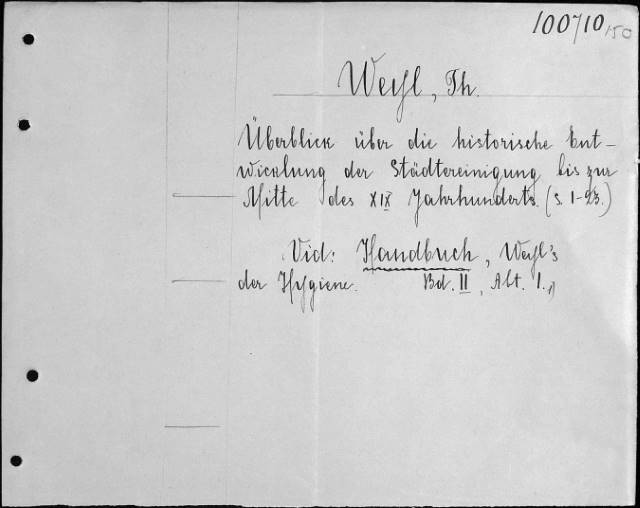 100710/150
Weyl, Th.
Überblick über die historische Ent-
wicklung der Städtereinigung bis zur
Mitte des XIX Jahrhunderts. (S. 1-23.)
Vid: Handbuch, Weyl's
der Hygiene. Bd. II, Abt. 1.